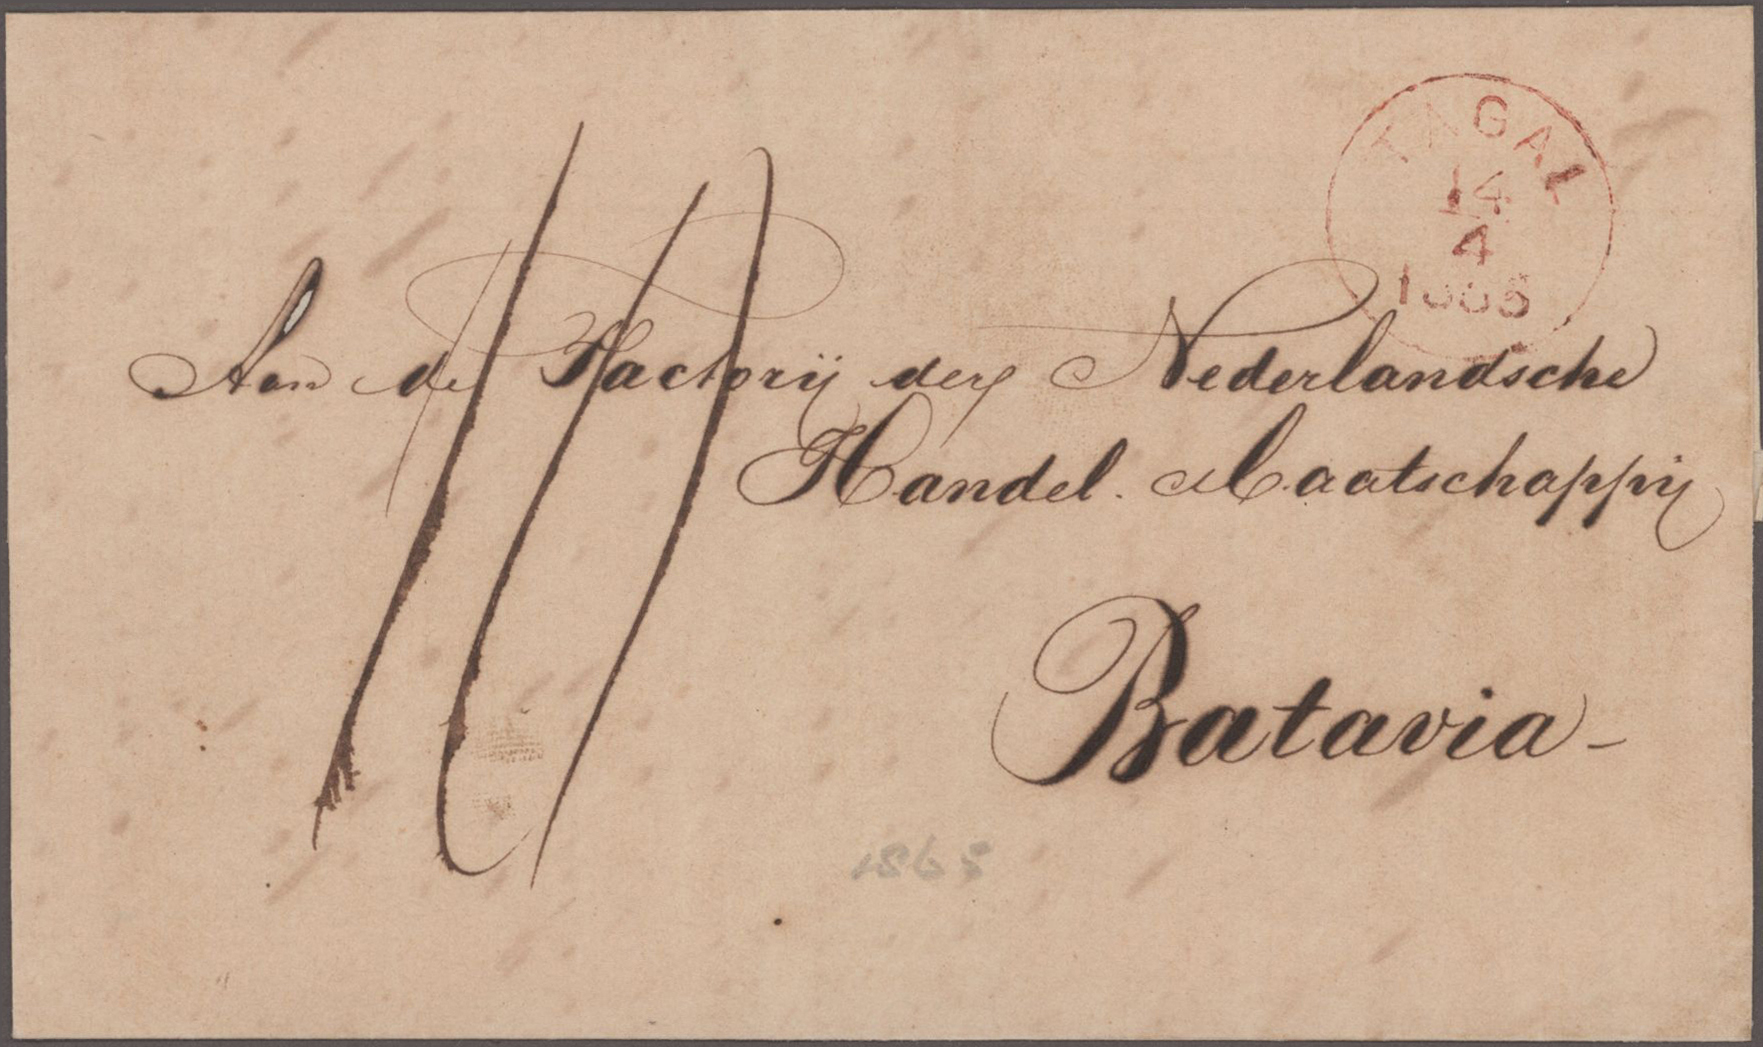 TAGAL
14
4
Aan de Factorij der Nederlandsche
Handel Maatschappij
Batavia
1865